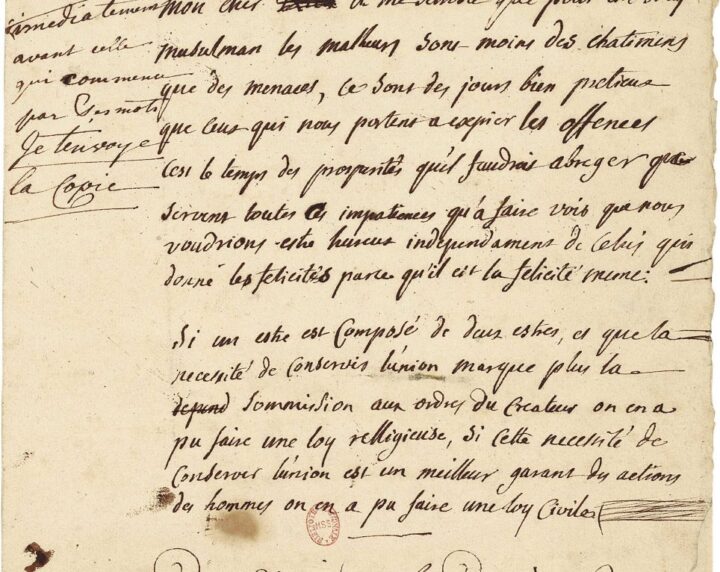 imediatement
avant celle
qui commence
par ses mots
Je t'envoye
la Copie
mon cher il me semble que pour un vray
musulman les malheurs sont moins des chatimens
que des menaces, ce sont des jours bien pretieux
que ceux qui nous portent a expier les offences
c'est le temps des prosperités qu'il faudrait abreger que
servent toutes ces impatiences qu'a faire voir que nous
voudrions estre heureux independament de celui qui
donne les felicités parce qu'il est la felicité meme.
Si un estre est Composé de deux estres, et que la
necessité de Conserver l'union marque plus la
depend Soumission aux ordres du Createur on en a
pu faire une loy relligieuse, Si Cette necessité de
Conserver l'union est un meilleur garant des actions
des hommes on en a pu faire une loy Civile